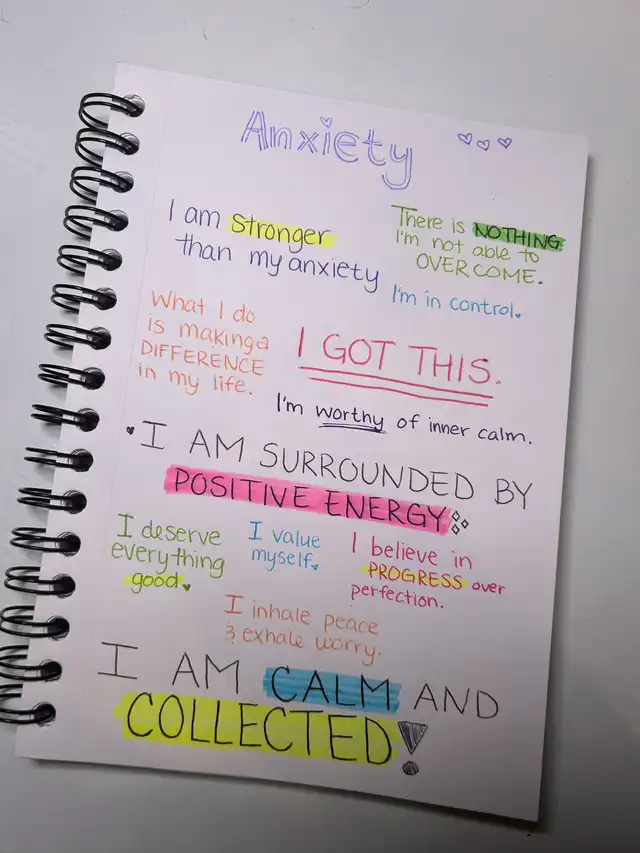 Anxiety
I am stronger
than my anxiety
There is NOTHING
I'm not able to
OVERCOME.
I'm in control.
What I do
is making a
DIFFERENCE
in my life.
I GOT THIS.
I'm worthy of inner calm.
I AM SURROUNDED BY
POSITIVE ENERGY
I deserve
everything
good.
I value
myself.
I believe in
PROGRESS over
perfection.
I inhale peace
& exhale worry.
I AM CALM AND
COLLECTED!